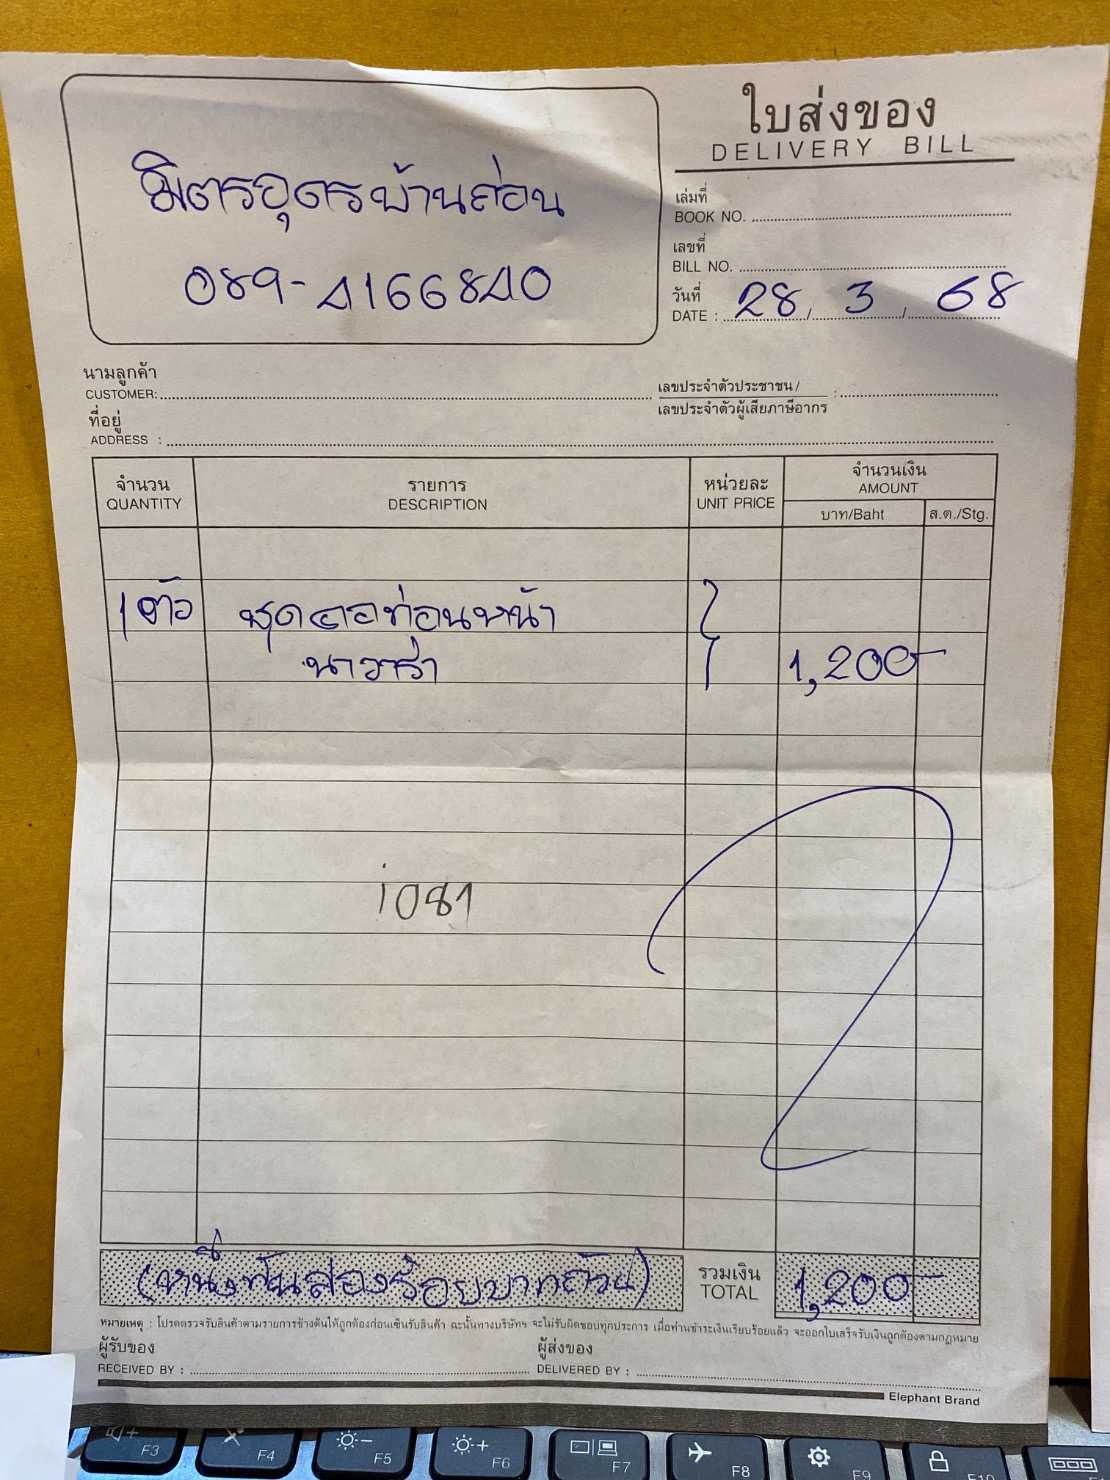 ใบส่งของ
DELIVERY BILL
มิตรอุดรบ้านถ่อน
089-4166840
เล่มที่
BOOK NO.
เลขที่
BILL NO.
วันที่
DATE : 28 / 3 / 68
นามลูกค้า
CUSTOMER:
เลขประจำตัวประชาชน /
เลขประจำตัวผู้เสียภาษีอากร :
ที่อยู่
ADDRESS :
จำนวน รายการ หน่วยละ จำนวนเงิน
QUANTITY DESCRIPTION UNIT PRICE AMOUNT
บาท/Baht ส.ต./Stg.
1 ตัว ชุดคอท่อนหน้า
นาวาร่า 1,200-
1081
(หนึ่งพันสองร้อยบาทถ้วน) รวมเงิน
TOTAL 1,200-
หมายเหตุ : โปรดตรวจรับสินค้าตามรายการข้างต้นให้ถูกต้องก่อนเซ็นรับสินค้า ฉะนั้นทางบริษัทฯ จะไม่รับผิดชอบทุกประการ เมื่อท่านชำระเงินเรียบร้อยแล้ว จะออกใบเสร็จรับเงินถูกต้องตามกฎหมาย
ผู้รับของ ผู้ส่งของ
RECEIVED BY : DELIVERED BY :
Elephant Brand
F3 F4 F5 F6 F7 F8 F9 F10